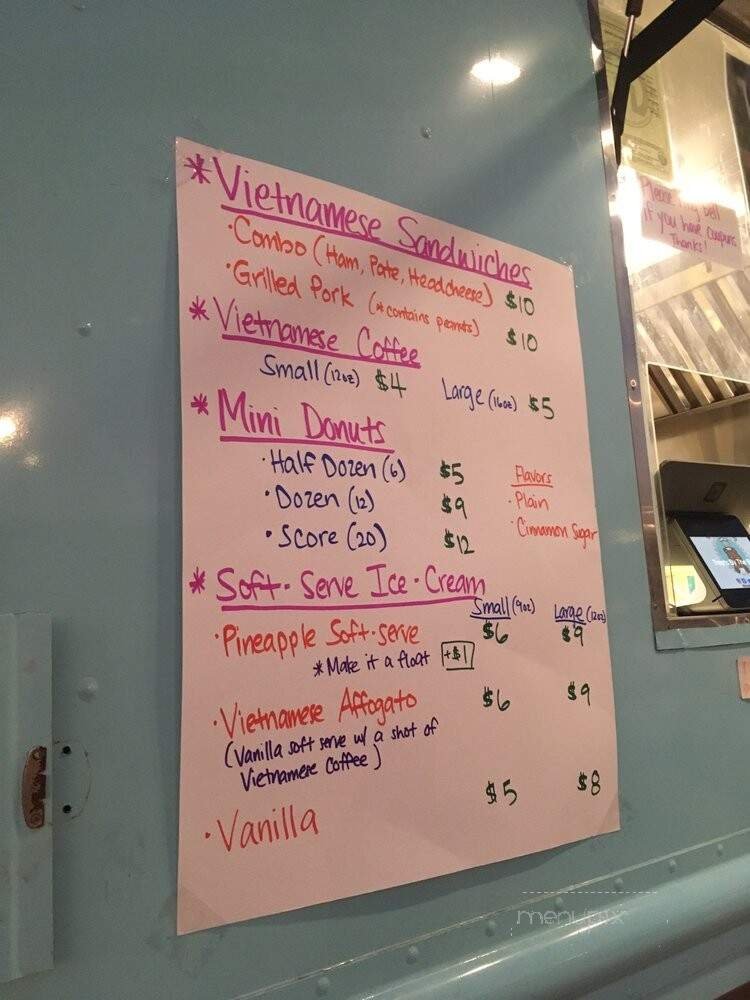 *Vietnamese Sandwiches
·Combo (Ham, Pate, Headcheese) $10
·Grilled Pork (*contains peanuts) $10
*Vietnamese Coffee
Small (12oz) $4 Large (16oz) $5
*Mini Donuts
·Half Dozen (6) $5
·Dozen (12) $9
·Score (20) $12
Flavors
·Plain
·Cinnamon Sugar
*Soft-Serve Ice-Cream
Small (9oz) Large (12oz)
·Pineapple Soft-serve $6 $9
*Make it a float +$1
·Vietnamese Affogato $6 $9
(Vanilla soft serve w/ a shot of
Vietnamese Coffee)
·Vanilla $5 $8
Please ring bell
if you have coupons
Thanks!
menupix